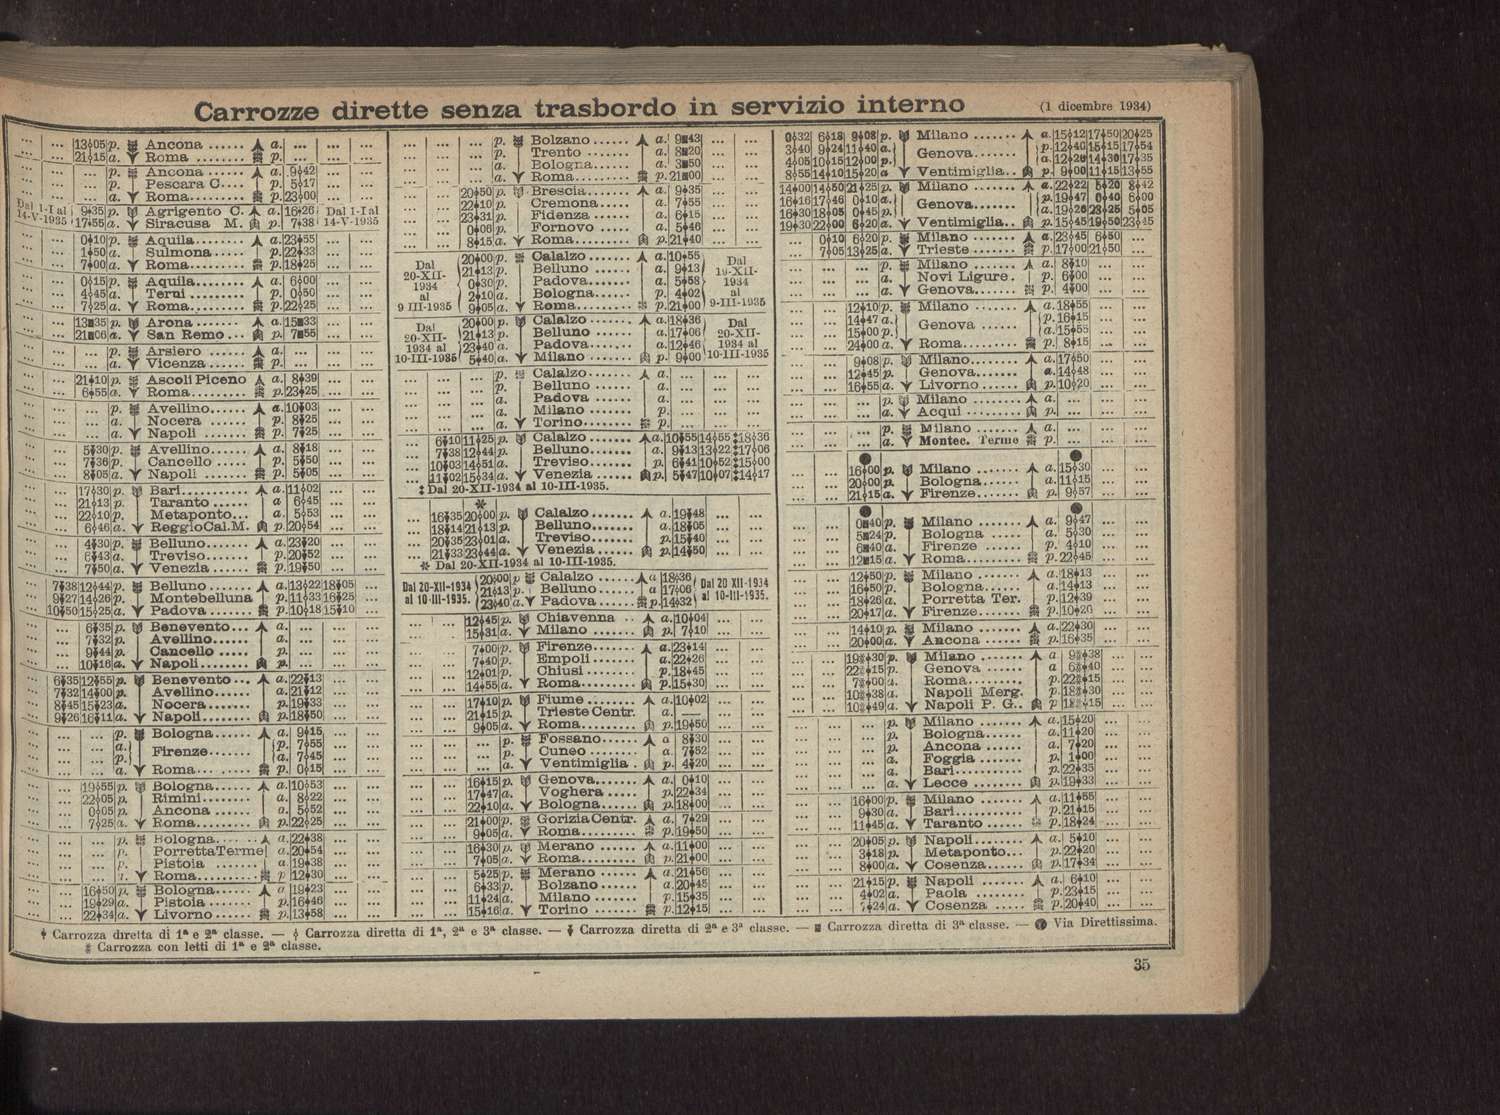 Carrozze dirette senza trasbordo in servizio interno (1 dicembre 1934)
13 05 p. Ancona ...... a. ...
21 15 a. Roma ........ p. ...
... p. Ancona ...... a. 9 42
... p. Pescara C.... p. 5 17
... a. Roma......... p. 23 00
Dal 1-I al 14-V-1935
9 35 p. Agrigento C. a. 16 26
17 55 a. Siracusa M. p. 7 38
Dal 1-I al 14-V-1935
0 10 p. Aquila....... a. 23 55
1 50 a. Sulmona..... p. 22 33
7 00 a. Roma......... p. 18 25
0 15 p. Aquila....... a. 6 00
4 45 a. Terni ......... p. 0 50
7 25 a. Roma......... p. 22 25
13 35 p. Arona ........ a. 15 33
21 06 a. San Remo... p. 7 55
... p. Arsiero ...... a. ...
... a. Vicenza...... p. ...
21 10 p. Ascoli Piceno a. 8 39
6 55 a. Roma......... p. 23 25
... p. Avellino...... a. 10 03
... a. Nocera ...... p. 8 25
... a. Napoli ....... p. 7 25
5 30 p. Avellino...... a. 8 18
7 36 p. Cancello ..... p. 5 50
8 05 a. Napoli ....... p. 5 05
17 30 p. Bari........... a. 11 02
21 13 p. Taranto ...... a 6 45
22 10 p. Metaponto... a. 5 53
6 46 a. Reggio Cal. M. p. 20 54
4 30 p. Belluno....... a. 23 20
6 43 a. Treviso....... p. 20 52
7 50 a. Venezia ...... p. 19 50
7 38 12 44 p. Belluno ...... a. 13 22 18 05
9 27 14 26 p. Montebelluna p. 11 33 16 25
10 50 15 25 a. Padova ....... p. 10 18 15 10
6 35 p. Benevento... a. ...
7 32 p. Avellino...... a. ...
9 44 p. Cancello ..... p. ...
10 16 a. Napoli........ p. ...
6 35 12 55 p. Benevento... a. 22 13
7 32 14 00 p. Avellino...... a. 21 12
8 45 15 23 a. Nocera....... p. 19 33
9 26 16 11 a. Napoli........ p. 18 50
... p. Bologna...... a. 9 15
... a. Firenze....... p. 7 55
... p. a. 7 45
... a. Roma... ..... p. 0 15
19 55 p. Bologna...... a. 10 53
22 05 p. Rimini........ a. 8 22
0 05 p. Ancona ...... a. 5 52
7 25 a. Roma......... p. 22 25
... p. Bologna...... a. 22 38
... p. Porretta Terme a. 20 54
... p. Pistoia a. 19 38
... Roma......... p 12 30
16 50 p. Bologna...... a 19 23
19 29 a. Pistoia ....... p. 16 46
22 34 a. Livorno ...... p. 13 58
... p. Bolzano ...... a. 9 43
... p. Trento ....... a. 8 20
... p. Bologna...... a. 3 50
... a. Roma......... p. 21 00
20 50 p. Brescia....... a. 9 35
22 10 p. Cremona..... p. 7 55
23 31 p. Fidenza ...... a. 6 15
0 06 p. Fornovo ..... a. 5 46
8 15 a. Roma......... p. 21 40
Dal 20-XII-1934 al 9 III-1935
20 00 p. Calalzo....... a. 10 55
21 13 p. Belluno ...... a. 9 13
0 30 p. Padova....... a. 5 58
2 10 a. Bologna...... p. 4 02
9 05 a. Roma......... p. 21 00
Dal 19-XII-1934 al 9-III-1935
Dal 20-XII-1934 al 10-III-1935
20 00 p. Calalzo ...... a. 18 36
21 13 p. Belluno ...... a. 17 06
23 40 a. Padova....... a. 12 46
5 40 a. Milano ....... p. 9 00
Dal 20-XII-1934 al 10-III-1935
... p. Calalzo....... a. ...
... p. Belluno ...... a. ...
... a. Padova ...... a. ...
... a. Milano ....... p. ...
... a. Torino........ p. ...
6 10 11 25 p. Calalzo ....... a. 10 55 14 55 ‡18 36
7 38 12 44 p. Belluno....... a. 9 13 13 22 ‡17 06
10 03 14 51 a. Treviso ...... p. 6 41 10 52 ‡15 00
11 02 15 34 a. Venezia ...... p. 5 47 10 07 ‡14 17
‡ Dal 20-XII-1934 al 10-III-1935.
*
16 35 20 00 p. Calalzo ....... a. 19 48
18 14 21 13 p. Belluno....... a. 18 05
20 35 23 01 a. Treviso....... p. 15 40
21 33 23 44 a. Venezia ...... p. 14 50
* Dal 20-XII-1934 al 10-III-1935.
Dal 20-XII-1934 al 10-III-1935.
20 00 p Calalzo ...... a 18 36
21 13 p. Belluno ...... a 17 06
23 40 a. Padova ....... p. 14 32
Dal 20 XII-1934 al 10-III-1935.
12 45 p. Chiavenna .. a. 10 04
15 31 a. Milano ....... p. 7 10
7 00 p. Firenze....... a. 23 14
7 40 p. Empoli ....... a. 22 26
12 01 p. Chiusi ........ p. 18 45
14 55 a. Roma......... p. 15 30
17 10 p. Fiume ........ a. 10 02
21 15 p. Trieste Centr. a. —
9 05 a. Roma......... p. 19 50
... p. Fossano...... a 8 30
... p. Cuneo ........ a. 7 52
... a. Ventimiglia . p. 4 20
16 15 p. Genova....... a. 0 10
17 47 a. Voghera ..... p. 22 34
22 10 a. Bologna...... p. 18 00
21 00 p. Gorizia Centr. a. 7 29
9 05 a. Roma......... p. 19 50
16 30 p. Merano ...... a. 11 00
7 05 a. Roma......... p. 21 00
5 25 p. Merano ...... a. 21 56
6 33 p. Bolzano a. 20 45
11 24 a. Milano ....... p. 15 35
15 16 a. Torino ....... p. 12 15
0 32 6 18 9 08 p. Milano ....... a. 15 12 17 50 20 25
3 40 9 24 11 40 a. Genova....... p. 12 40 15 15 17 54
4 05 10 15 12 00 p. a. 12 20 14 30 17 35
8 55 14 10 15 20 a Ventimiglia.. p. 9 00 11 15 13 55
14 00 14 50 21 25 p. Milano ....... a. 22 22 5 20 8 42
16 16 17 46 0 10 a. Genova....... p. 19 47 0 40 6 00
16 30 18 05 0 45 p. a. 19 26 23 25 5 05
19 30 22 00 6 20 a. Ventimiglia.. p. 15 45 19 50 23 45
0 10 6 20 p. Milano ....... a. 23 45 6 50
7 05 13 25 a. Trieste ....... p. 17 00 21 50
... p. Milano ....... a. 8 10
... a. Novi Ligure. p. 6 00
... a. Genova....... p. 4 00
12 10 p. Milano ....... a. 18 55
14 47 a. Genova ...... p. 16 15
15 00 p. a. 15 55
24 00 a. Roma......... p. 8 15
9 08 p. Milano........ a. 17 50
12 45 p. Genova....... a. 14 48
16 55 a. Livorno ...... p. 10 20
... p. Milano ....... a. ...
... a. Acqui ........ p. ...
... p. Milano ....... a. ...
... a. Montec. Terme p. ...
16 00 p. Milano ....... a. 15 30
20 00 p. Bologna...... a. 11 15
21 15 a. Firenze....... p. 9 57
0 40 p. Milano ....... a. 9 47
5 24 p. Bologna ..... a. 5 30
6 40 a. Firenze ...... p. 4 10
12 15 a. Roma......... p. 22 45
12 50 p. Milano ....... a. 18 13
16 50 p. Bologna...... a. 14 13
18 26 a. Porretta Ter. p. 12 39
20 17 a. Firenze....... p. 10 20
14 10 p. Milano ....... a. 22 30
20 00 a. Ancona ...... p. 16 35
19 30 p. Milano ....... a 9 38
22 15 p. Genova ...... a 6 40
7 00 a. Roma......... p. 22 15
10 38 a. Napoli Merg. p. 18 30
10 49 a. Napoli P. G.. p 18 15
... p. Milano ....... a. 15 20
... p. Bologna...... a. 11 20
... p. Ancona ...... a. 7 20
... a. Foggia ....... p. 1 00
... a. Bari........... p. 22 35
... a. Lecce ........ p. 19 33
16 00 p. Milano ....... a. 11 55
9 30 a. Bari........... p. 21 15
11 45 a. Taranto ...... p. 18 24
20 05 p. Napoli........ a. 5 10
3 18 p. Metaponto... p. 22 20
8 00 a. Cosenza...... p. 17 34
21 15 p. Napoli ....... a. 6 10
4 02 p. Paola ........ p. 23 15
7 24 a. Cosenza ..... p. 20 40
Carrozza diretta di 1ª e 2ª classe. — Carrozza diretta di 1ª, 2ª e 3ª classe. — Carrozza diretta di 2ª e 3ª classe. — Carrozza diretta di 3ª classe. — Via Direttissima.
Carrozza con letti di 1ª e 2ª classe.
35